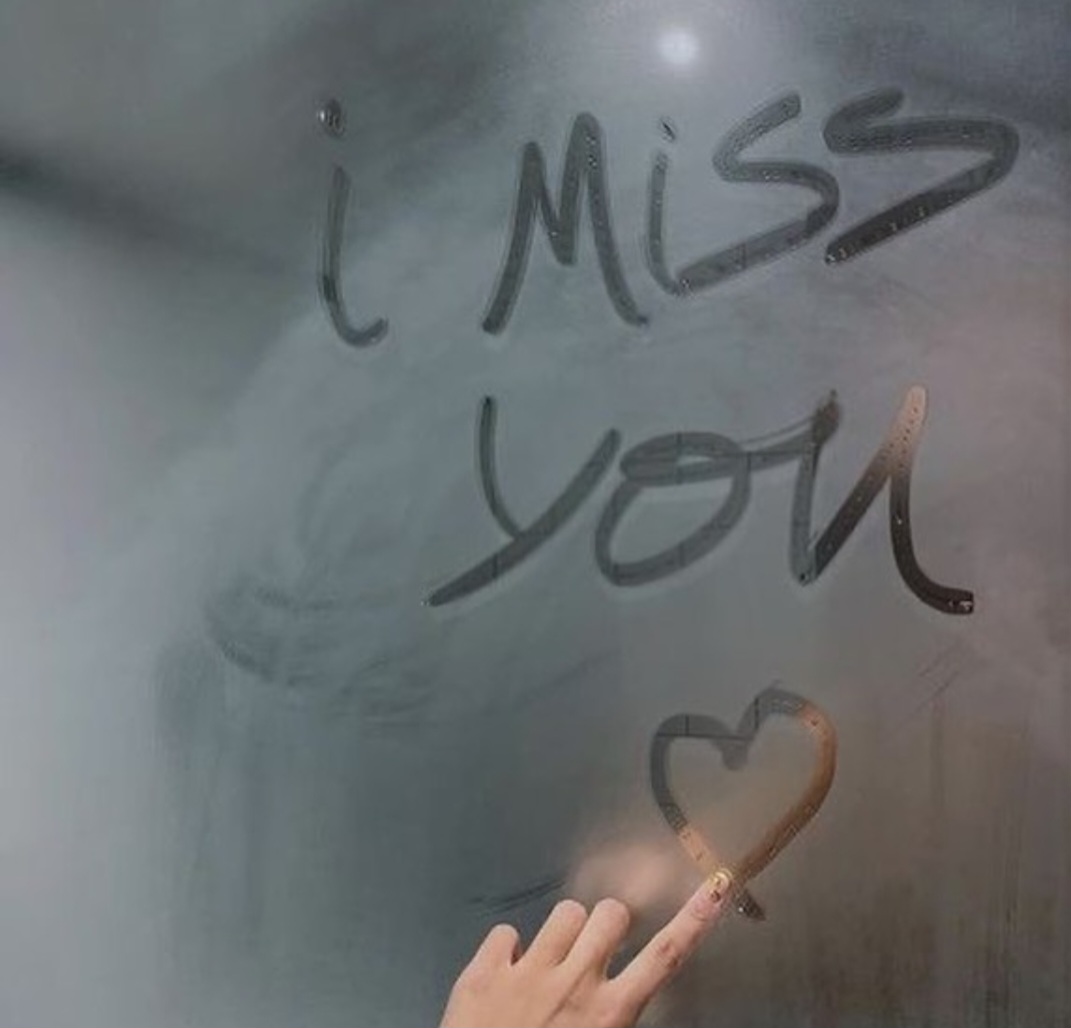 i Miss
you